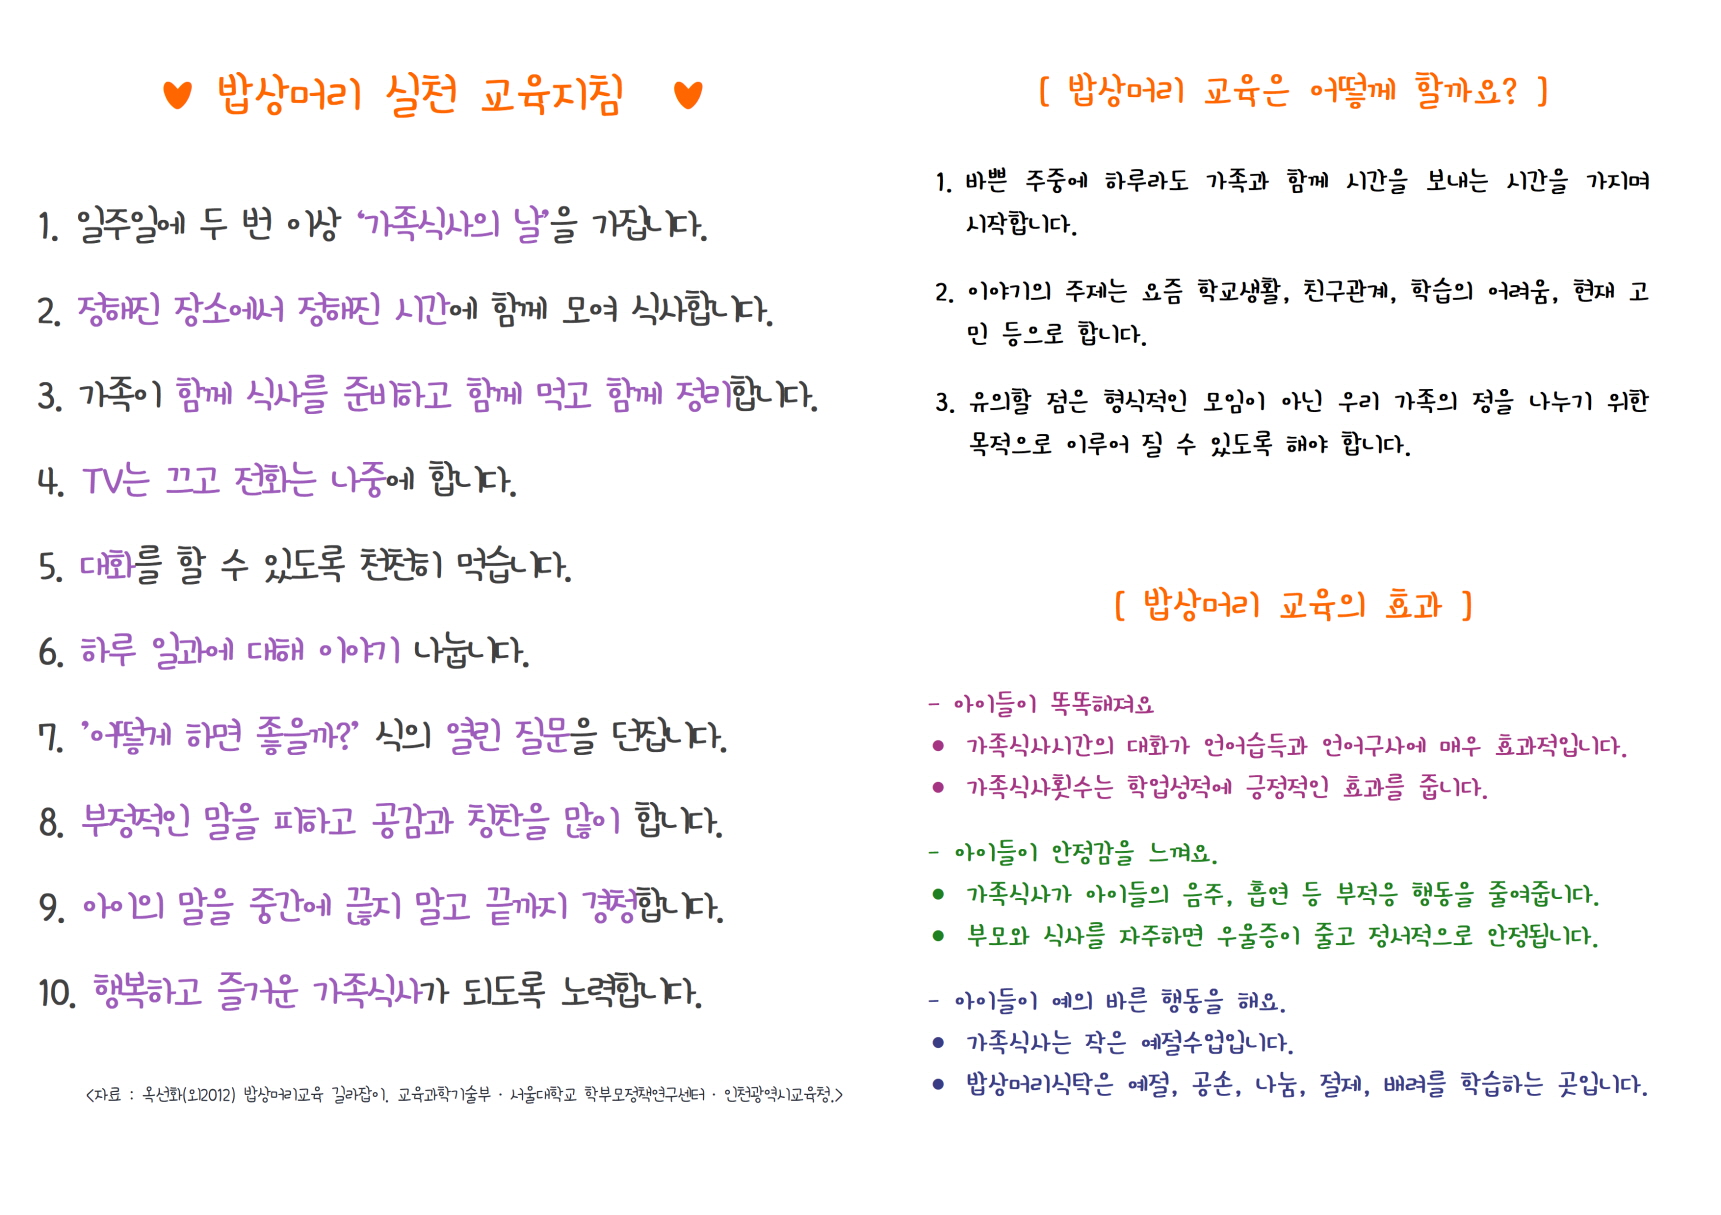 ♥ 밥상머리 실천 교육지침 ♥
1. 일주일에 두 번 이상 '가족식사의 날'을 가집니다.
2. 정해진 장소에서 정해진 시간에 함께 모여 식사합니다.
3. 가족이 함께 식사를 준비하고 함께 먹고 함께 정리합니다.
4. TV는 끄고 전화는 나중에 합니다.
5. 대화를 할 수 있도록 천천히 먹습니다.
6. 하루 일과에 대해 이야기 나눕니다.
7. '어떻게 하면 좋을까?' 식의 열린 질문을 던집니다.
8. 부정적인 말을 피하고 공감과 칭찬을 많이 합니다.
9. 아이의 말을 중간에 끊지 말고 끝까지 경청합니다.
10. 행복하고 즐거운 가족식사가 되도록 노력합니다.
<자료 : 옥선화(외2012) 밥상머리교육 길라잡이. 교육과학기술부 · 서울대학교 학부모정책연구센터 · 인천광역시교육청.>
[ 밥상머리 교육은 어떻게 할까요? ]
1. 바쁜 주중에 하루라도 가족과 함께 시간을 보내는 시간을 가지며
시작합니다.
2. 이야기의 주제는 요즘 학교생활, 친구관계, 학습의 어려움, 현재 고
민 등으로 합니다.
3. 유의할 점은 형식적인 모임이 아닌 우리 가족의 정을 나누기 위한
목적으로 이루어 질 수 있도록 해야 합니다.
[ 밥상머리 교육의 효과 ]
- 아이들이 똑똑해져요
● 가족식사시간의 대화가 언어습득과 언어구사에 매우 효과적입니다.
● 가족식사횟수는 학업성적에 긍정적인 효과를 줍니다.
- 아이들이 안정감을 느껴요.
● 가족식사가 아이들의 음주, 흡연 등 부적응 행동을 줄여줍니다.
● 부모와 식사를 자주하면 우울증이 줄고 정서적으로 안정됩니다.
- 아이들이 예의 바른 행동을 해요.
● 가족식사는 작은 예절수업입니다.
● 밥상머리식탁은 예절, 공손, 나눔, 절제, 배려를 학습하는 곳입니다.